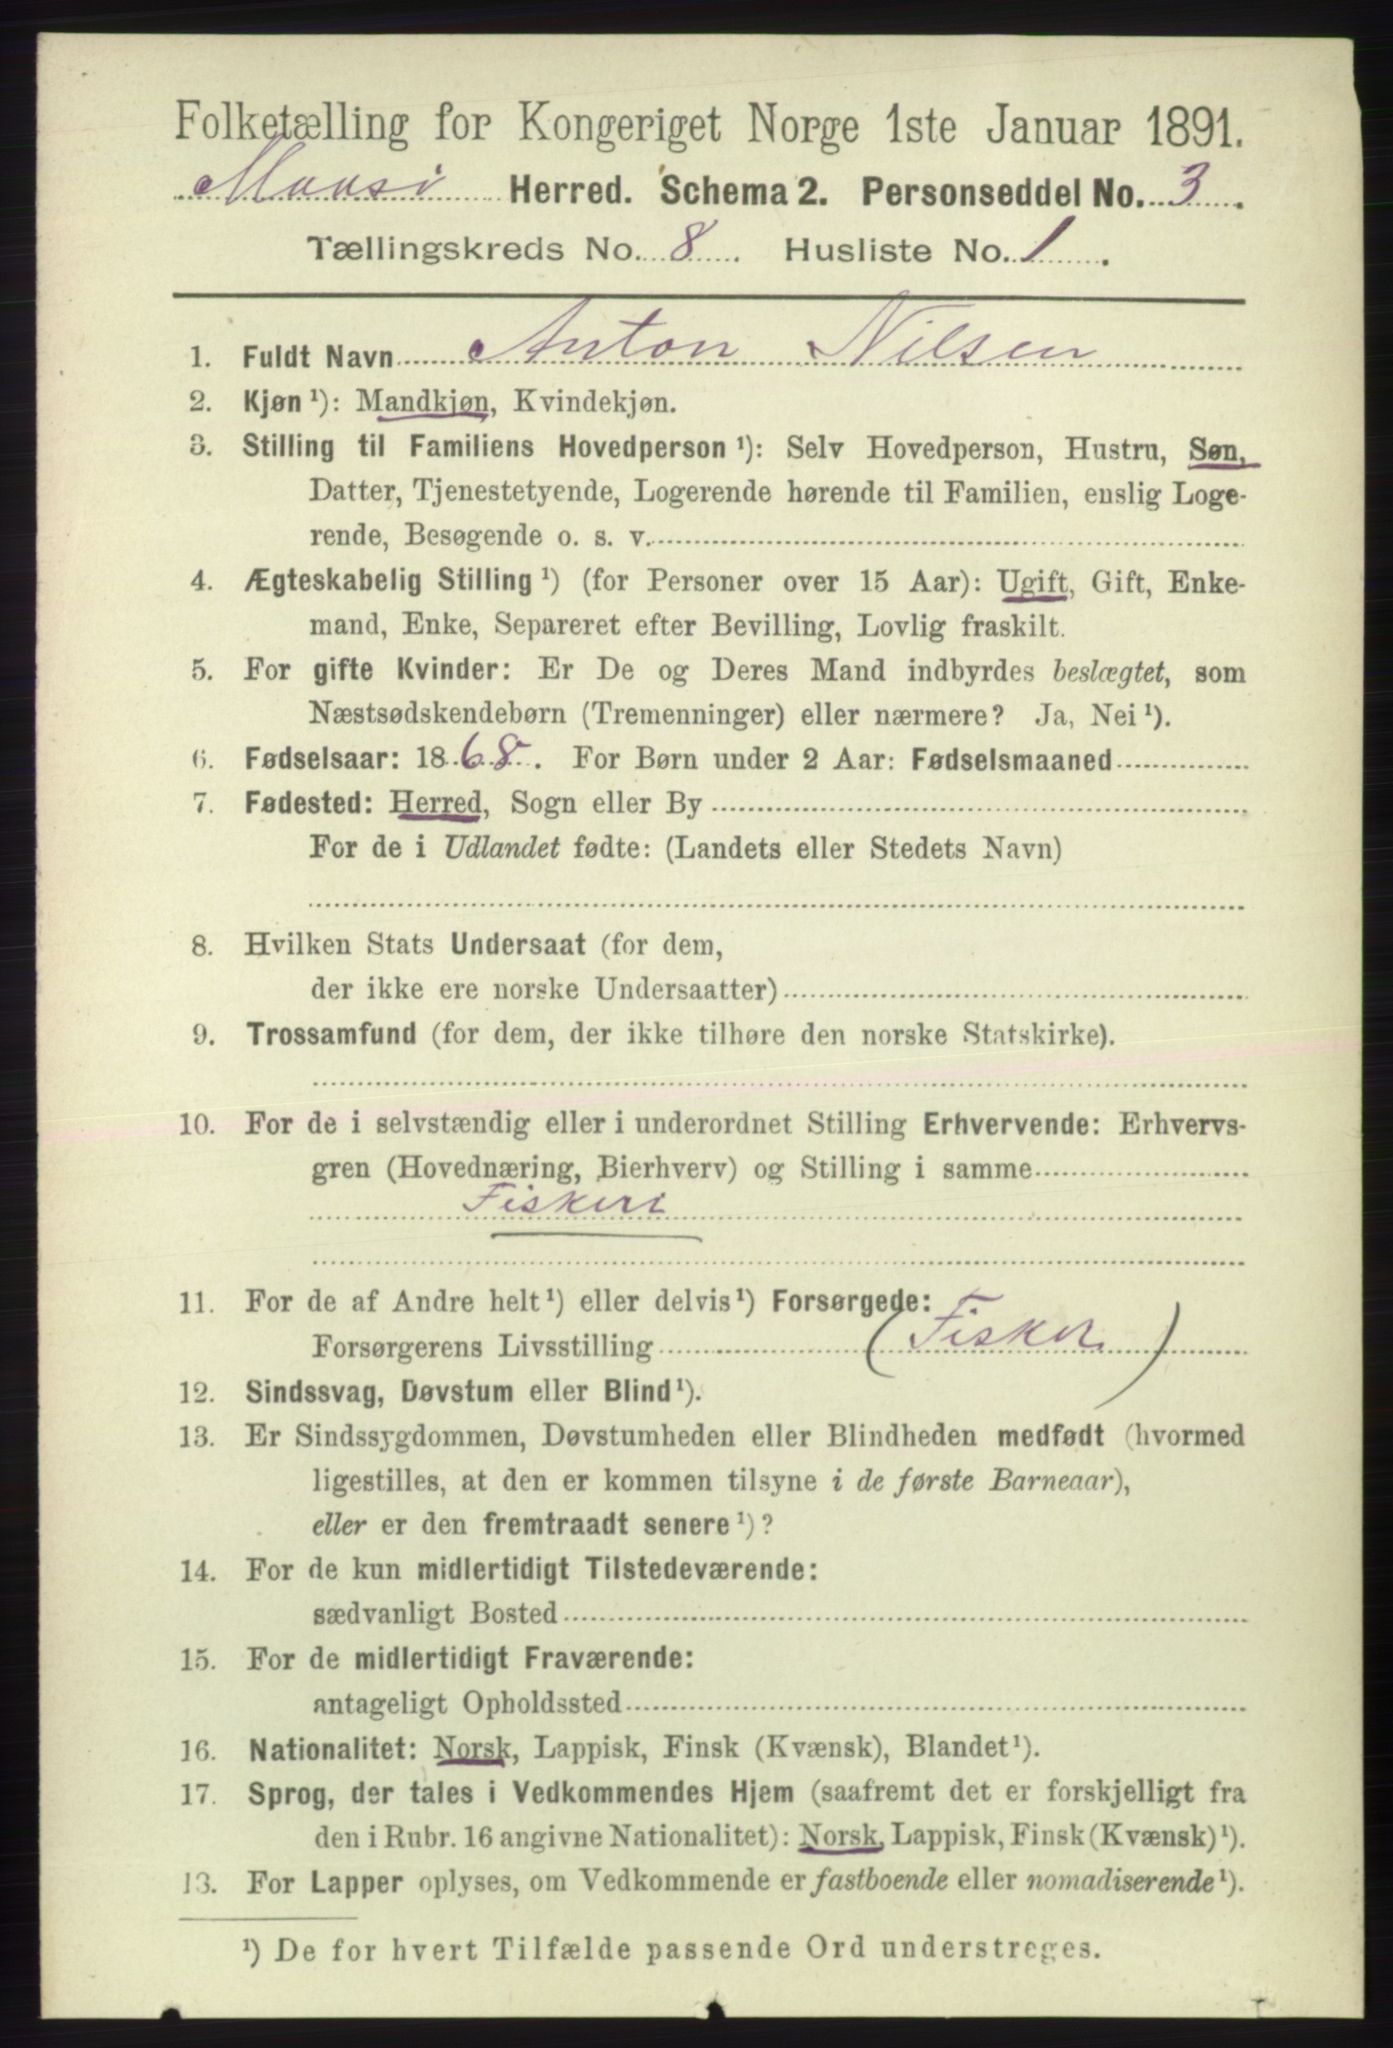 Folketælling for Kongeriget Norge 1ste Januar 1891.
Maasø Herred. Schema 2. Personseddel No. 3.
Tællingskreds No. 8. Husliste No. 1.
1. Fuldt Navn Anton Nilsen
2. Kjøn ¹): Mandkjøn, Kvindekjøn.
3. Stilling til Familiens Hovedperson ¹): Selv Hovedperson, Hustru, Søn,
Datter, Tjenestetyende, Logerende hørende til Familien, enslig Loge-
rende, Besøgende o. s. v.
4. Ægteskabelig Stilling ¹) (for Personer over 15 Aar): Ugift, Gift, Enke-
mand, Enke, Separeret efter Bevilling, Lovlig fraskilt.
5. For gifte Kvinder: Er De og Deres Mand indbyrdes beslægtet, som
Næstsødskendebørn (Tremenninger) eller nærmere? Ja, Nei ¹).
6. Fødselsaar: 1868. For Børn under 2 Aar: Fødselsmaaned
7. Fødested: Herred, Sogn eller By
For de i Udlandet fødte: (Landets eller Stedets Navn)
8. Hvilken Stats Undersaat (for dem,
der ikke ere norske Undersaatter)
9. Trossamfund (for dem, der ikke tilhøre den norske Statskirke).
10. For de i selvstændig eller i underordnet Stilling Erhvervende: Erhvervs-
gren (Hovednæring, Bierhverv) og Stilling i samme
Fiskeri
11. For de af Andre helt ¹) eller delvis ¹) Forsørgede:
Forsørgerens Livsstilling (Fisker)
12. Sindssvag, Døvstum eller Blind ¹).
13. Er Sindssygdommen, Døvstumheden eller Blindheden medfødt (hvormed
ligestilles, at den er kommen tilsyne i de første Barneaar),
eller er den fremtraadt senere ¹)?
14. For de kun midlertidigt Tilstedeværende:
sædvanligt Bosted
15. For de midlertidigt Fraværende:
antageligt Opholdssted
16. Nationalitet: Norsk, Lappisk, Finsk (Kvænsk), Blandet ¹).
17. Sprog, der tales i Vedkommendes Hjem (saafremt det er forskjelligt fra
den i Rubr. 16 angivne Nationalitet): Norsk, Lappisk, Finsk (Kvænsk) ¹).
13. For Lapper oplyses, om Vedkommende er fastboende eller nomadiserende ¹).
¹) De for hvert Tilfælde passende Ord understreges.